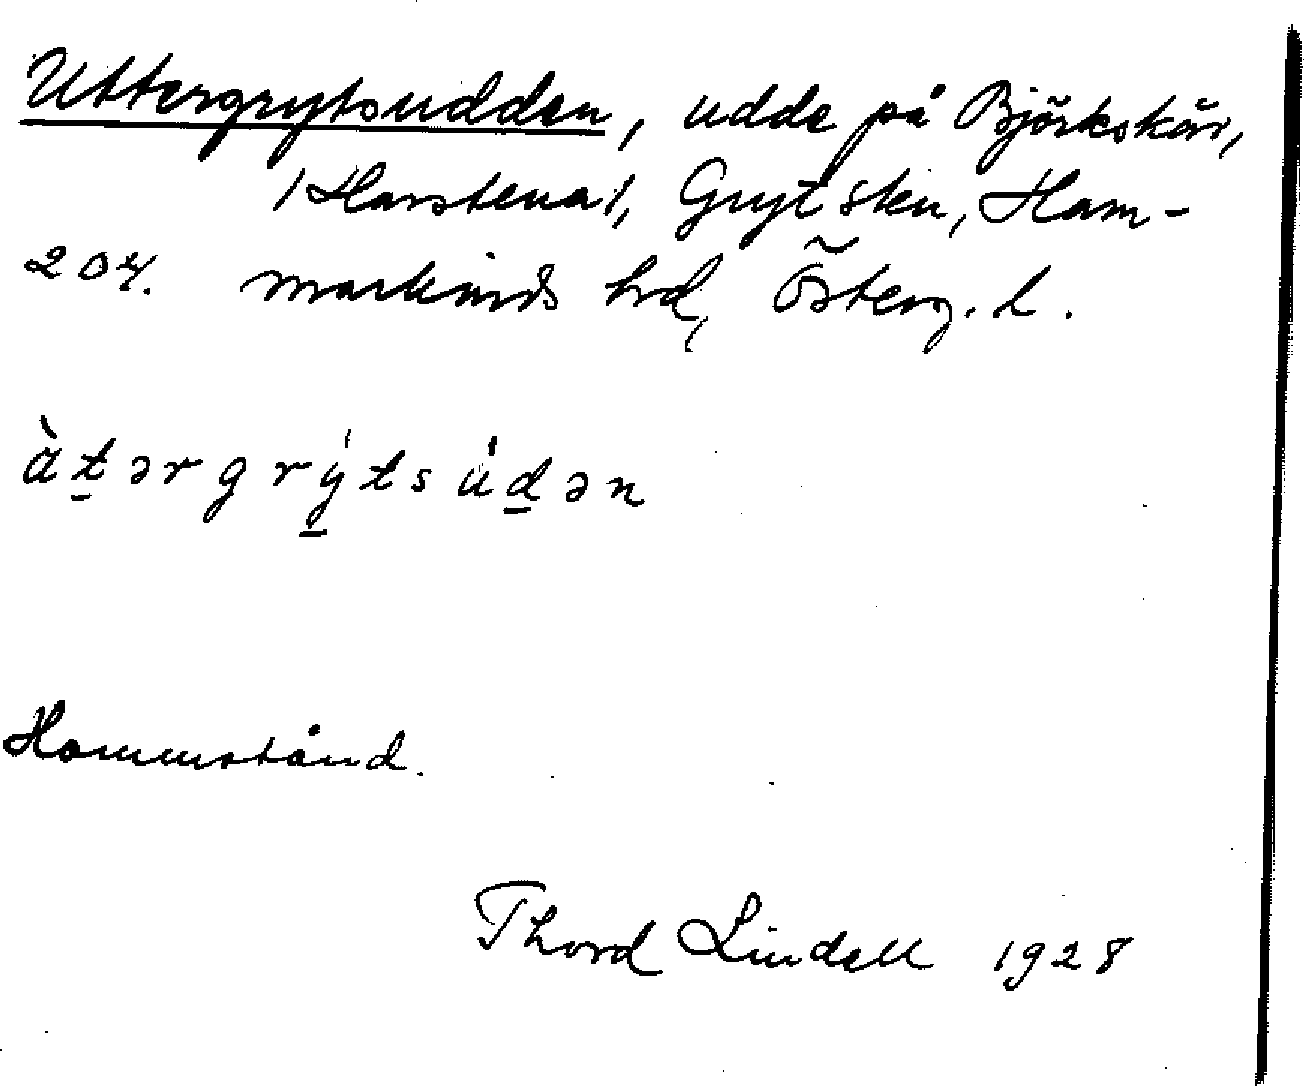 Uttergrytsudden, udde på Björkskär,
/Harstena/, Gryt skn, Ham-
204. markinds hd, Österg. l.
àt̲ərgrý̲tsúd̲ən
Hommstånd.
Thord Lindell 1928